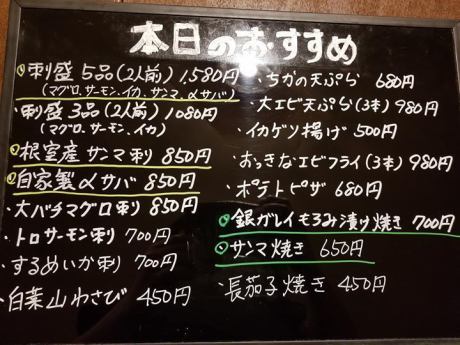 本日のおすすめ
刺盛 5品(2人前) 1,580円
(マグロ、サーモン、イカ、サンマ、〆サバ)
・刺盛 3品(2人前) 1080円
(マグロ、サーモン、イカ)
根室産 サンマ刺 850円
自家製〆サバ 850円
・大バチマグロ刺 850円
・トロサーモン刺 700円
・するめいか刺 700円
・白葉山わさび 450円
・ちかの天ぷら 680円
・大エビ天ぷら(3本) 980円
・イカゲソ揚げ 500円
・おっきなエビフライ(3本) 980円
・ポテトピザ 680円
銀ガレイもろみ漬け焼き 700円
サンマ焼き 650円
・長茄子焼き 450円